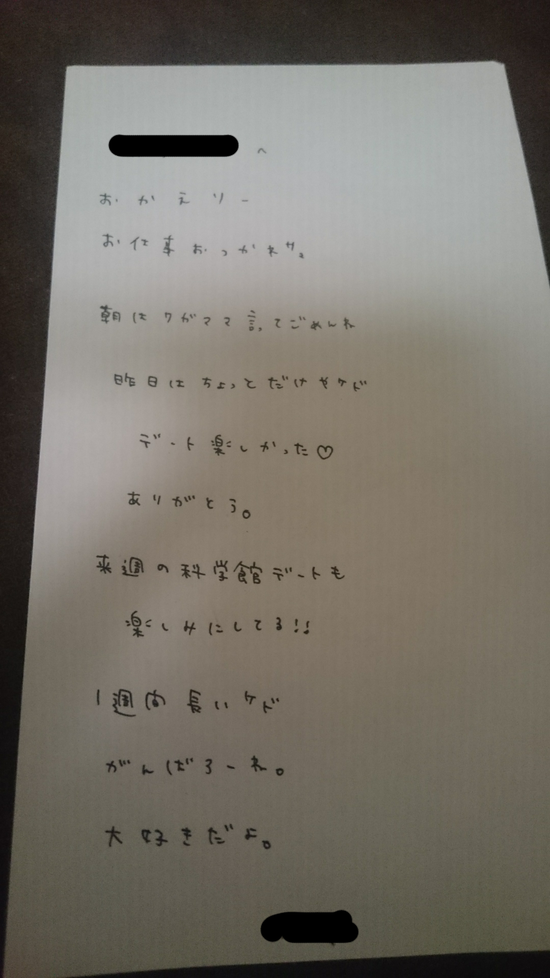 へ
おかえりー
お仕事おつかれサ。
朝はワガママ言ってごめんね
昨日はちょっとだけやケド
デート楽しかった♡
ありがとう。
来週の科学館デートも
楽しみにしてる!!
1週間長いケド
がんばろーね。
大好きだよ。